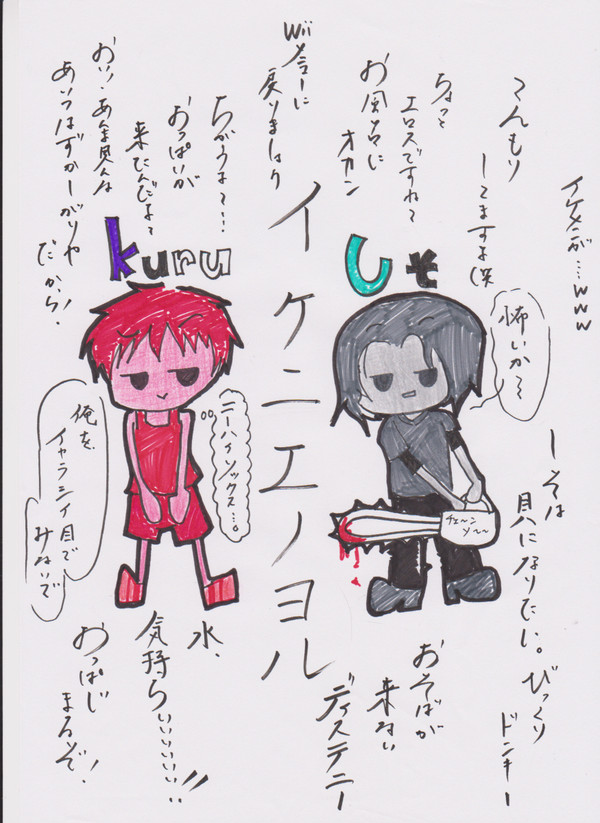 イケメンが…www
てんもり
してますよ(笑
ちょっと
エロスですねて
お風呂に
オカン
Wiiメニューに
戻りましょう
イケニエノヨル
ちがうよて…!
おっぱいが
来たんだよて
おい!あんま見んな
あいつはずかしがりや
だから!
kuru
しそ
怖いか~
ニーハイソックス…。
俺を、
イヤラシイ目で
みないで
チェ~ン
ソ~~
しそは
貝になりたい。
びっくり
ドンキー
おそばが
来ない
ディスティニー
水、
気持ちいいいいい!!
おっぱじ
まるぞ!